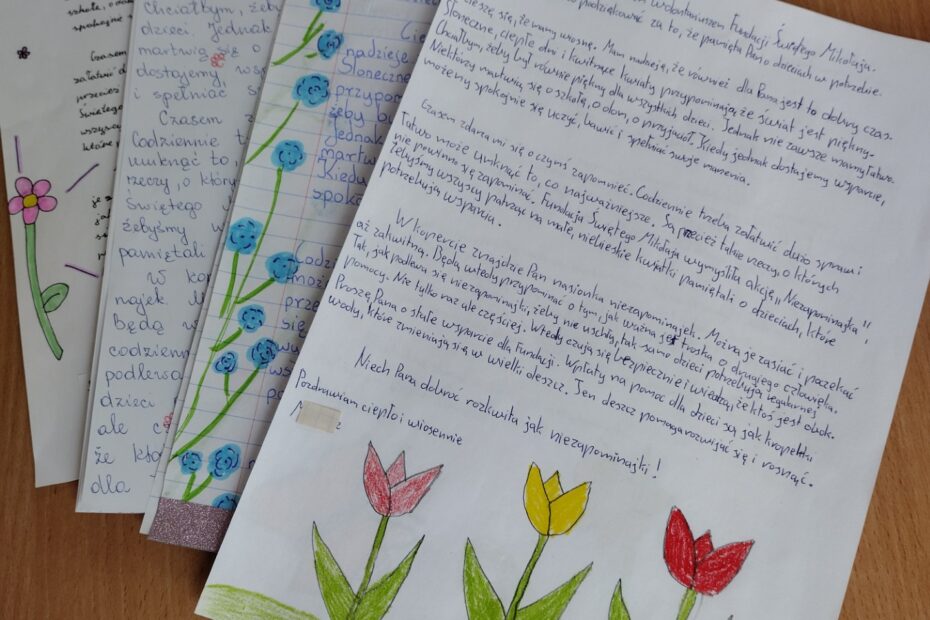 szkole, o do
spokojnie
Czasem
załatwić d
przecież
Świętego
wszyscy
które p
Chciałbym, żeby
dzieci. Jednak
martwią się o
dostajemy, wsp
i spełniać s
Czasem z
Codziennie t
umknąć to,
rzeczy, o któr
Świętego
żebyśmy w
pamiętali
W kop
najek
Będą w
codzienn
podlewa
dzieci
ale c
że kto
dla
Cie
nadzieję
Słoneczne
przypom
żeby b
Jednak
martw
Kiedy
spoko
Codz
moż
prze
się
wolontariuszem Fundacji Świętego Mikołaja.
podziękować za to, że pamięta Pan o dzieciach w potrzebie.
cieszę się, że mamy wiosnę. Mam nadzieję, że również dla Pana jest to dobry czas.
Słoneczne, ciepłe dni i kwitnące kwiaty przypominają, że świat jest piękny.
Chciałbym, żeby był równie piękny dla wszystkich dzieci. Jednak nie zawsze mamy łatwo.
Niektórzy martwią się o szkołę, o dom, o przyjaciół. Kiedy jednak dostajemy wsparcie,
możemy spokojnie się uczyć, bawić i spełniać swoje marzenia.
Czasem zdarza mi się o czymś zapomnieć. Codziennie trzeba załatwić dużo spraw i
łatwo może umknąć to, co najważniejsze. Są przecież takie rzeczy, o których
nie powinno się zapominać. Fundacja Świętego Mikołaja wymyśliła akcję „Niezapominajka”
żebyśmy wszyscy patrząc na małe, niebieskie kwiatki pamiętali o dzieciach, które
potrzebują wsparcia.
W kopercie znajdzie Pan nasionka niezapominajek. Można je zasiać i poczekać
aż zakwitną. Będą wtedy przypominać o tym, jak ważna jest troska o drugiego człowieka.
Tak, jak podlewa się niezapominajki, żeby nie uschły, tak samo dzieci potrzebują regularnej
pomocy. Nie tylko raz ale częściej. Wtedy czują się bezpiecznie i wiedzą, że ktoś jest obok.
Proszę Pana o stałe wsparcie dla Fundacji. Wpłaty na pomoc dla dzieci są jak kropelki
wody, które zmieniają się w wielki deszcz. Ten deszcz pomaga rozwijać się i rosnąć.
Niech Pana dobroć rozkwita jak niezapominajki!
Pozdrawiam ciepło i wiosennie